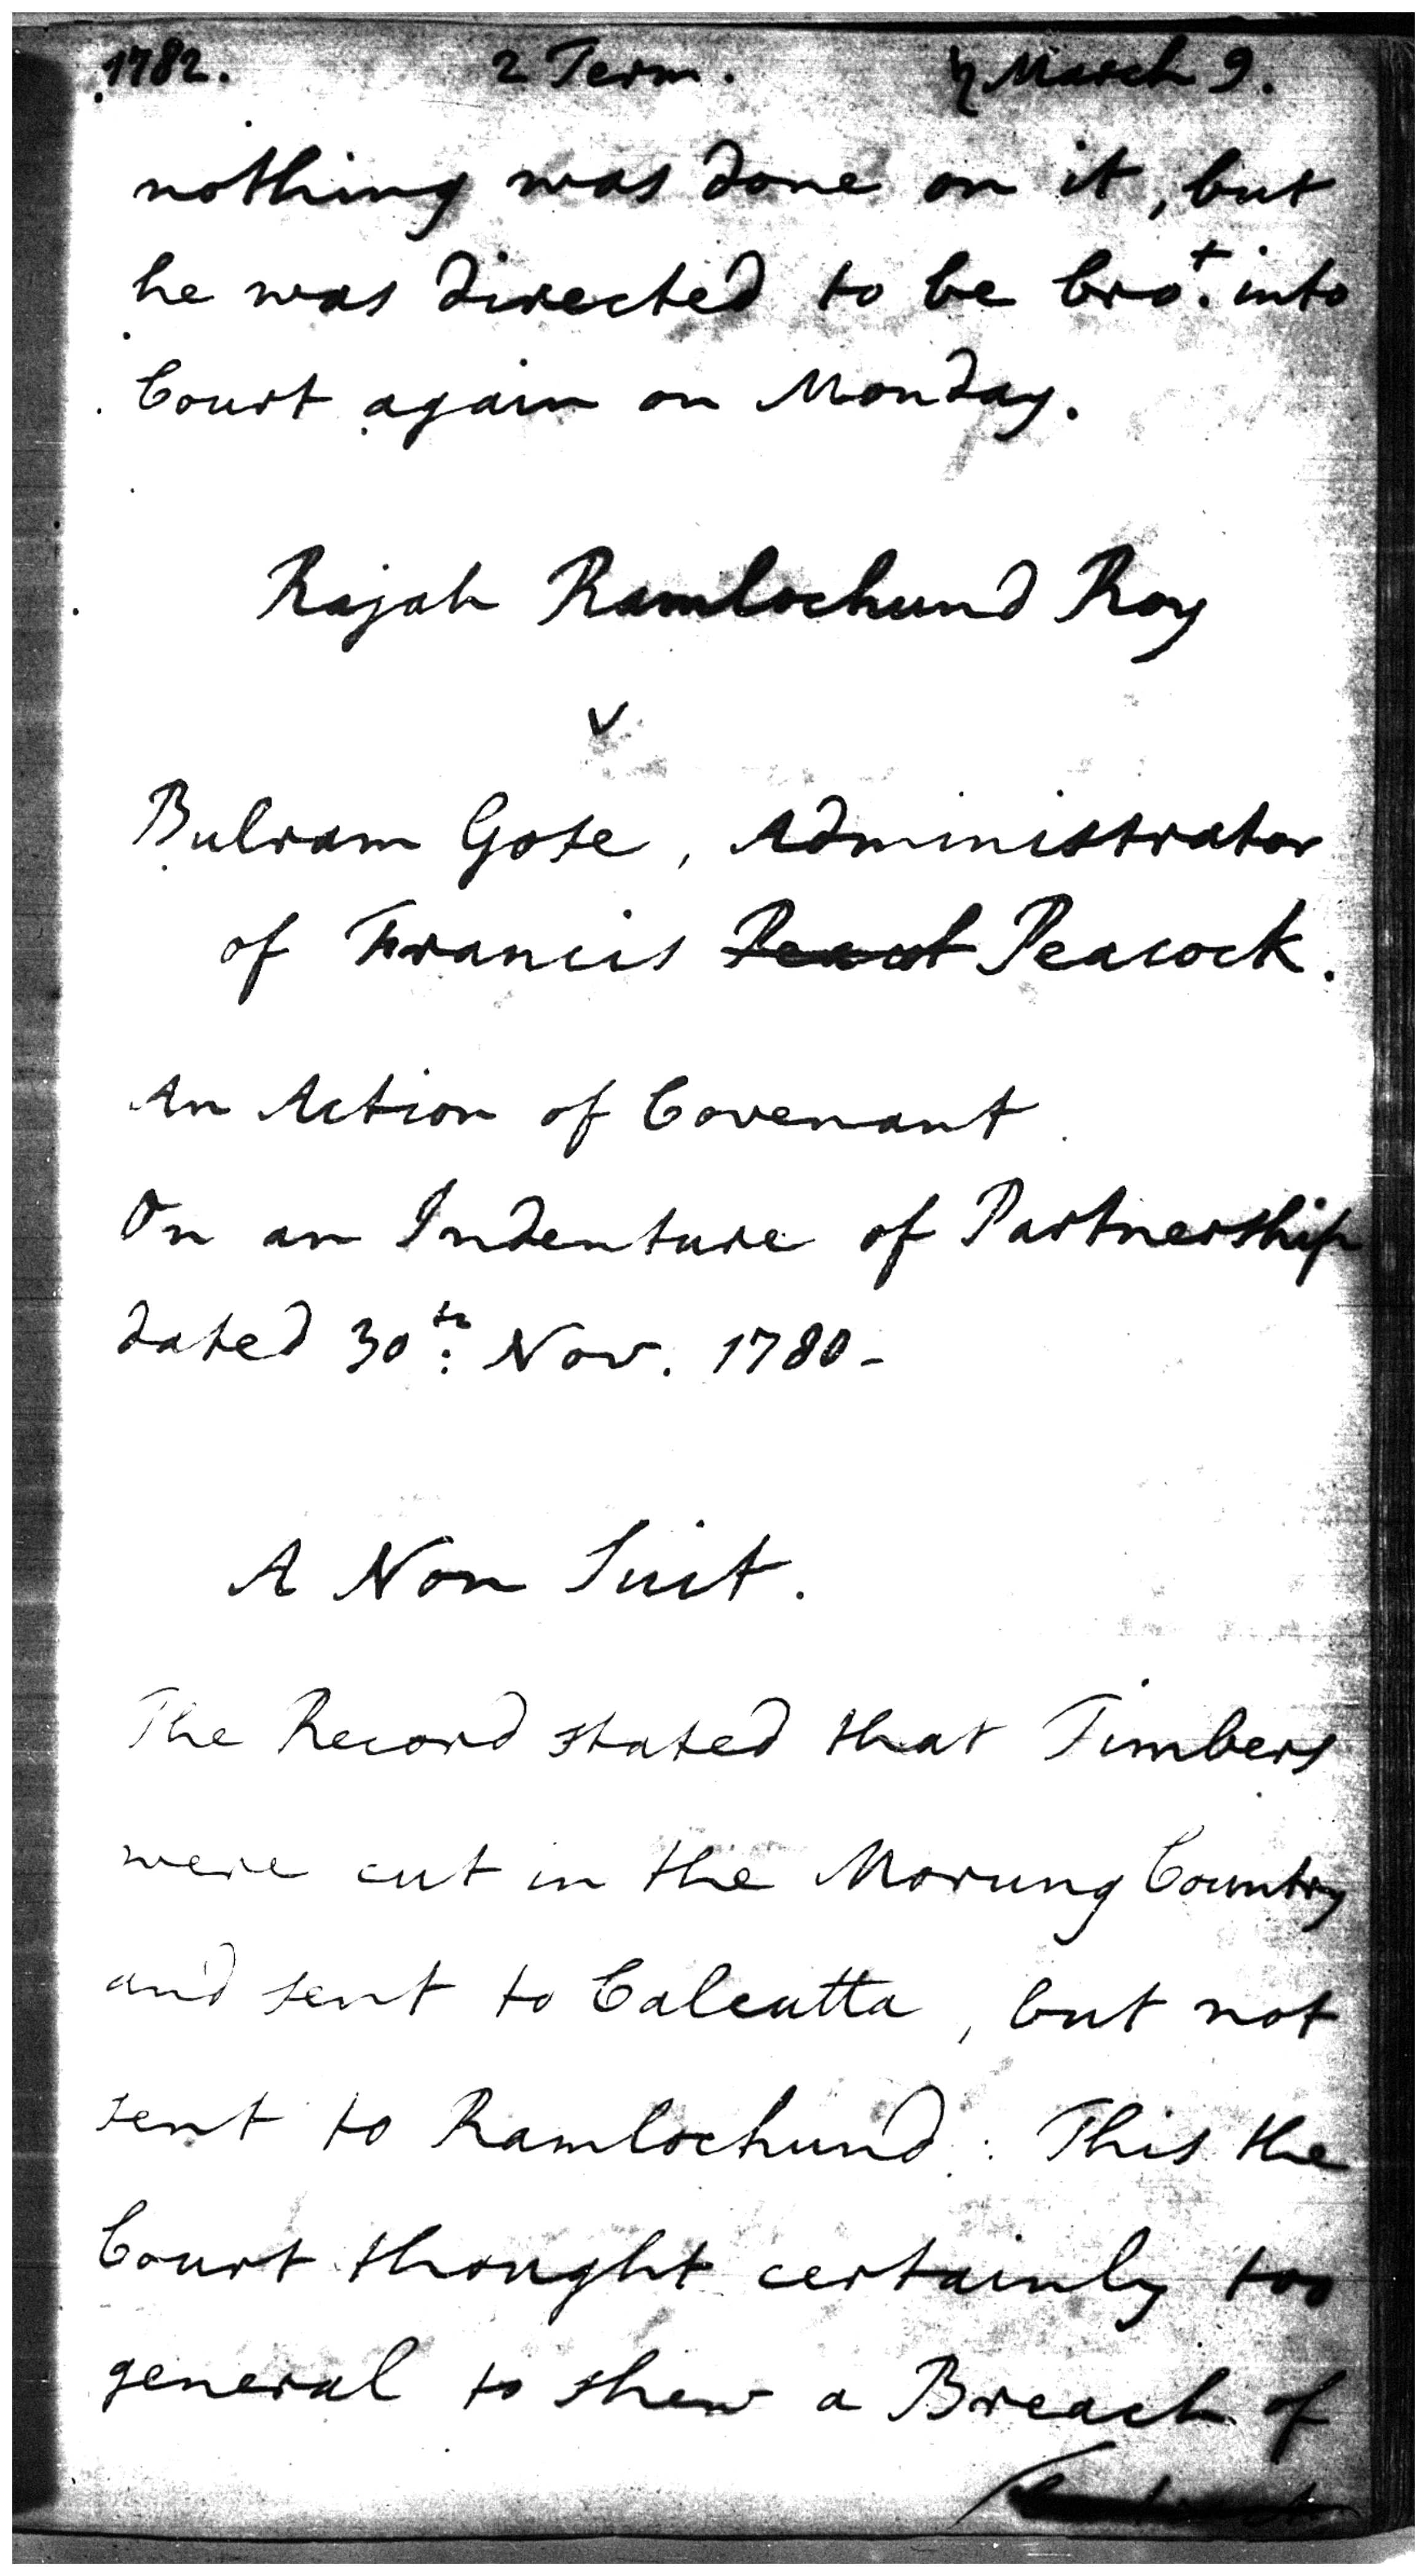 1782. 2 Term. ♄ March 9.
nothing was done on it, but
he was directed to be bro.t into
Court again on Monday.
Rajah Ramlochund Roy
v
Bulram Gose, Administrator
of Francis Peacock.
An Action of Covenant.
On an Indenture of Partnership
dated 30th: Nov. 1780-
A Non Suit.
The Record stated that Timbers
were cut in the Morung Country
and sent to Calcutta, but not
sent to Ramlochund: This the
Court thought certainly too
general to shew a Breach of